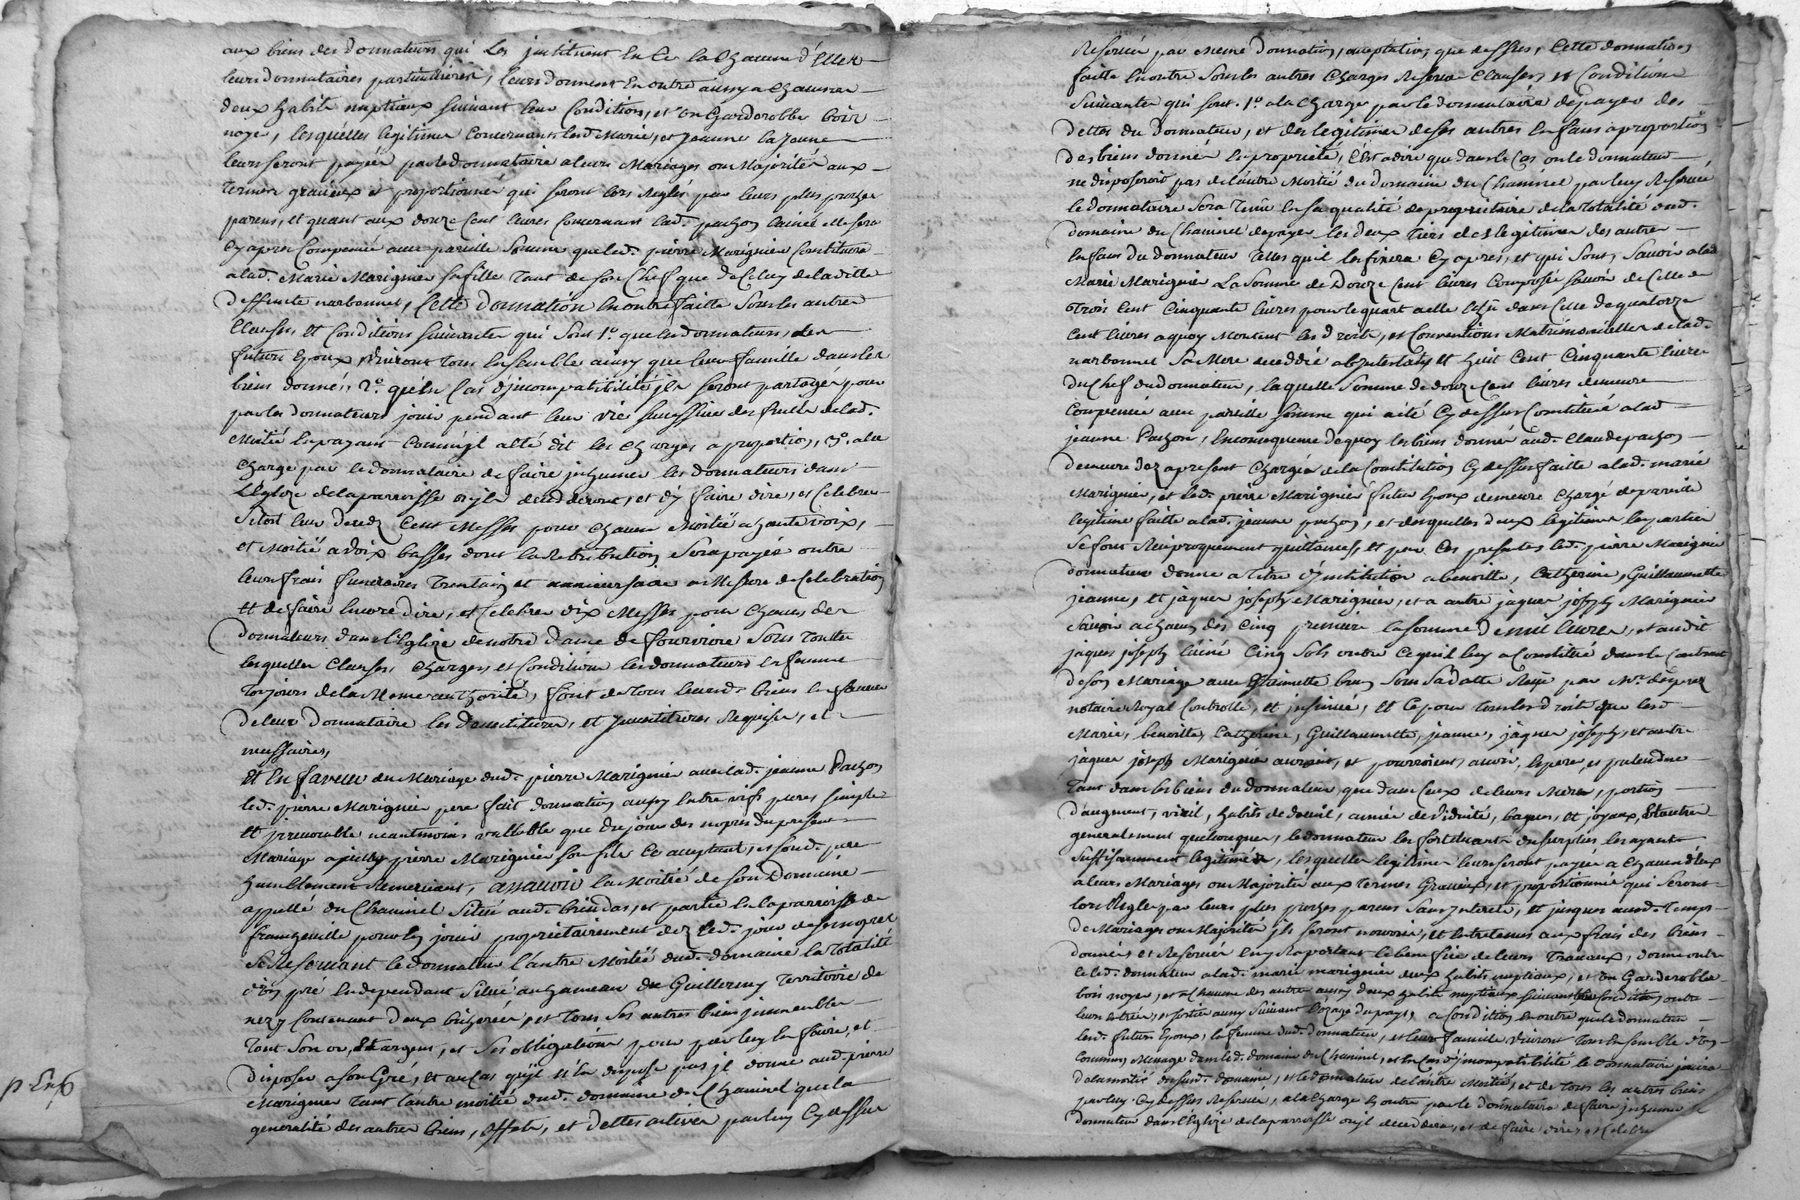 aux biens des donnateurs qui les instituent en ce la chacune d'elles
leurs donnataires particulieres, leurs donnent en outre aussy a chacunes
deux habits nuptiaux suivant leur condition, et un garderobbe bois
noyer, lesquelles legitimes concernants lesd. Marie, et Jeanne la jeune
leurs seront payées par le donnataire a leurs Mariages ou Majorité aux
termes gracieux et proportionnés qui seront lors Reglés par leurs plus proches
parens, et quant aux douze cent livres concernant lad. pachon l'ainée elle sera
cy apres compensée avec pareille somme que led. pierre Marignier constituera
a lad. Marie Marignier sa fille tant de son chef que de celuy de la ditte
deffunte narbonnet, cette donnation en outre faitte sous les autres
clauses et conditions suivantes qui sont 1º. que les donnateurs, les
futurs epoux, vivront tous ensemble ainsy que leur famille dans les
biens donnés, 2º. qu'en cas d'incompatibilité ils seront partagés pour
par les donnateurs jouir pendant leur vie successive des fruits de lad.
Moitié en payant comme il a été dit les charges a proportion, 3º. a la
charge par le donnataire de faire inhumer les donnateurs dans
l'Eglize de la parroisse ou ils decederont, et d'y faire dire, et celebrer
sitost leur decez cent Messes pour chacun Moitié a haute voix,
et Moitié a voix basses dont la Retribution sera payée outre
leurs frais funeraires trentain et anniversaire a Mesure de celebration
et de faire encore dire, et celebrer dix Messes pour chacun des
donnateurs dans l'Eglize de notre dame de fourviere sous toutes
lesquelles clauses, charges, et conditions les donnateurs la femme
toujours de la Meme authorité, font de tous leursd. biens en faveur
de leur donnataire les devestitures, et Investitures Requises, et
necessaires,
Et En faveur du Mariage dud. pierre Marignier avec lad. jeanne Pachon
led. pierre Marignier pere fait donnation aussy entre vifs pures simple
et irrevocable neantmoins vallable que du jour des nopces du present
Mariage a jcelluy pierre Marignier son fils ce acceptant, et sond. pere
humblement Remerciant, assavoir la Moitié de son Domaine
appellé du Chaminel situé aud. brindas, et partie en la parroisse de
francheville pour en jouir proprietairement dez led. jour de ses nopces
se Reservant le donnateur l'autre Moitié dud. domaine la totalité
d'un pré independant situé au hameau du Guillermy territoire de
nezy contenant deux bicherées, et tous ses autres biens immeubles
tout son or, et argent, et ses obligations pour par luy en faire, et
disposer a son Gré, et au cas qu'il n'en dispose pas il donne aud. pierre
Marignier tant l'autre moitié dud. domaine du Chaminel que la
generalité des autres biens, effets, et dettes actives par luy cy dessus
p Eng
Reservée par meme donnation, acceptation que dessus, cette donnation
faitte en outre sous les autres charges Reserves clauses, et conditions
suivantes qui sont. 1º. a la charge par le donnataire de payer des
dettes du donnateur, et des legitimes de ses autres enfans a proportion
des biens donnés en propriété, c'est a dire que dans le cas ou le donnateur
ne disposeroit pas de l'autre Moitié du domaine du Chaminel par luy Reservée
le donnataire sera tenu en sa qualité de proprietaire de la totalité dud.
domaine du Chaminel de payer les deux tiers des legitimes des autres
enfans du donnateur telles qu'il les fixera cy apres, et qui sont, savoir a lad.
Marie Marignier la somme de Douze cent livres composée savoir de celle de
trois cent cinquante livres pour le quart a elle échû dans celle de quatorze
cent livres a quoy montent les droits, et conventions Matrimonielles de lad.
narbonnet sa Mere decedée abjntestat, et huit cent cinquante livres
du chef du donnateur, laquelle somme de douze cent livres demeure
compensée avec pareille somme qui a été cy dessus constituée a lad.
jeanne Pachon, en consequence de quoy les biens donnés aud. Claude pachon
demeure dez a present chargés de la constitution cy dessus faitte a lad. marie
Marignier, et led. pierre Marignier futur epoux demeure chargé de pareille
legitime faitte a lad. jeanne pachon, et desquelles deux legitimes les parties
se font Reciproquement quittances, et par ces presentes led. pierre Marignier
donnateur donne a titre d'institution a benoitte, Catherine, Guillaumette
jeanne, et jaques joseph Marignier, et a autre jaques joseph Marignier
savoir a chacun des cinq premiers la somme de mil livres, et audit
jaques joseph l'ainé cinq sols outre ce qu'il luy a constitué dans le contrat
de son Mariage avec brun sous sa datte Reçu par Me.
notaire Royal controllé, et insinué, et ce pour tous les droits que lesd.
Marie, benoitte, Catherine, Guillaumette, jeanne, jaques joseph, et autre
jaques joseph Marignier auroient, et pourroient, avoir, esperer, et pretendre
tant dans les biens du donnateur, que dans ceux de leurs Meres, portion
d'augment, viril, habits de deuil, année de viduité, bagues, et joyaux, et autres
generalement quelconques, le donnateur les fortcluant du surplus les ayant
suffisamment legitimés, lesquelles legitimes leurs seront payées a chacun d'eux
a leurs Mariages ou Majorité aux termes gracieux, et proportionnés qui seront
lors Reglés par leurs plus proches parens sans interets, et jusques aud. temps
de Mariages ou Majorité ils seront nourris, et entretenus aux frais des biens
donnés et Reservés en y Rapportant le benefice de leurs travaux, donne outre
ce led. donnateur a lad. marie marignier deux habits nuptiaux, et un Garderobbe
bois noyer, et a chacune des autres aussy deux habits nuptiaux suivant leur condition, outre
leurs entrée, et sortie aussy suivant l'uzage du pays, a condition en outre que le donnateur
lesd. futurs Epoux, la femme dud. donnateur, et leur famille vivront tous ensemble d'un
commun Menage dans led. domaine du Chaminel, et en cas d'jncompatibilité le donnataire jouira
de la moitié dusurd. domaine, et le donnateur de l'autre Moitié, et de tous les autres biens
par luy cy dessus Reservés, a la charge en outre par le donnataire de faire inhumer le
donnateur dans l'Eglize de la parroisse ou il decedera, et de faire dire, et celebrer